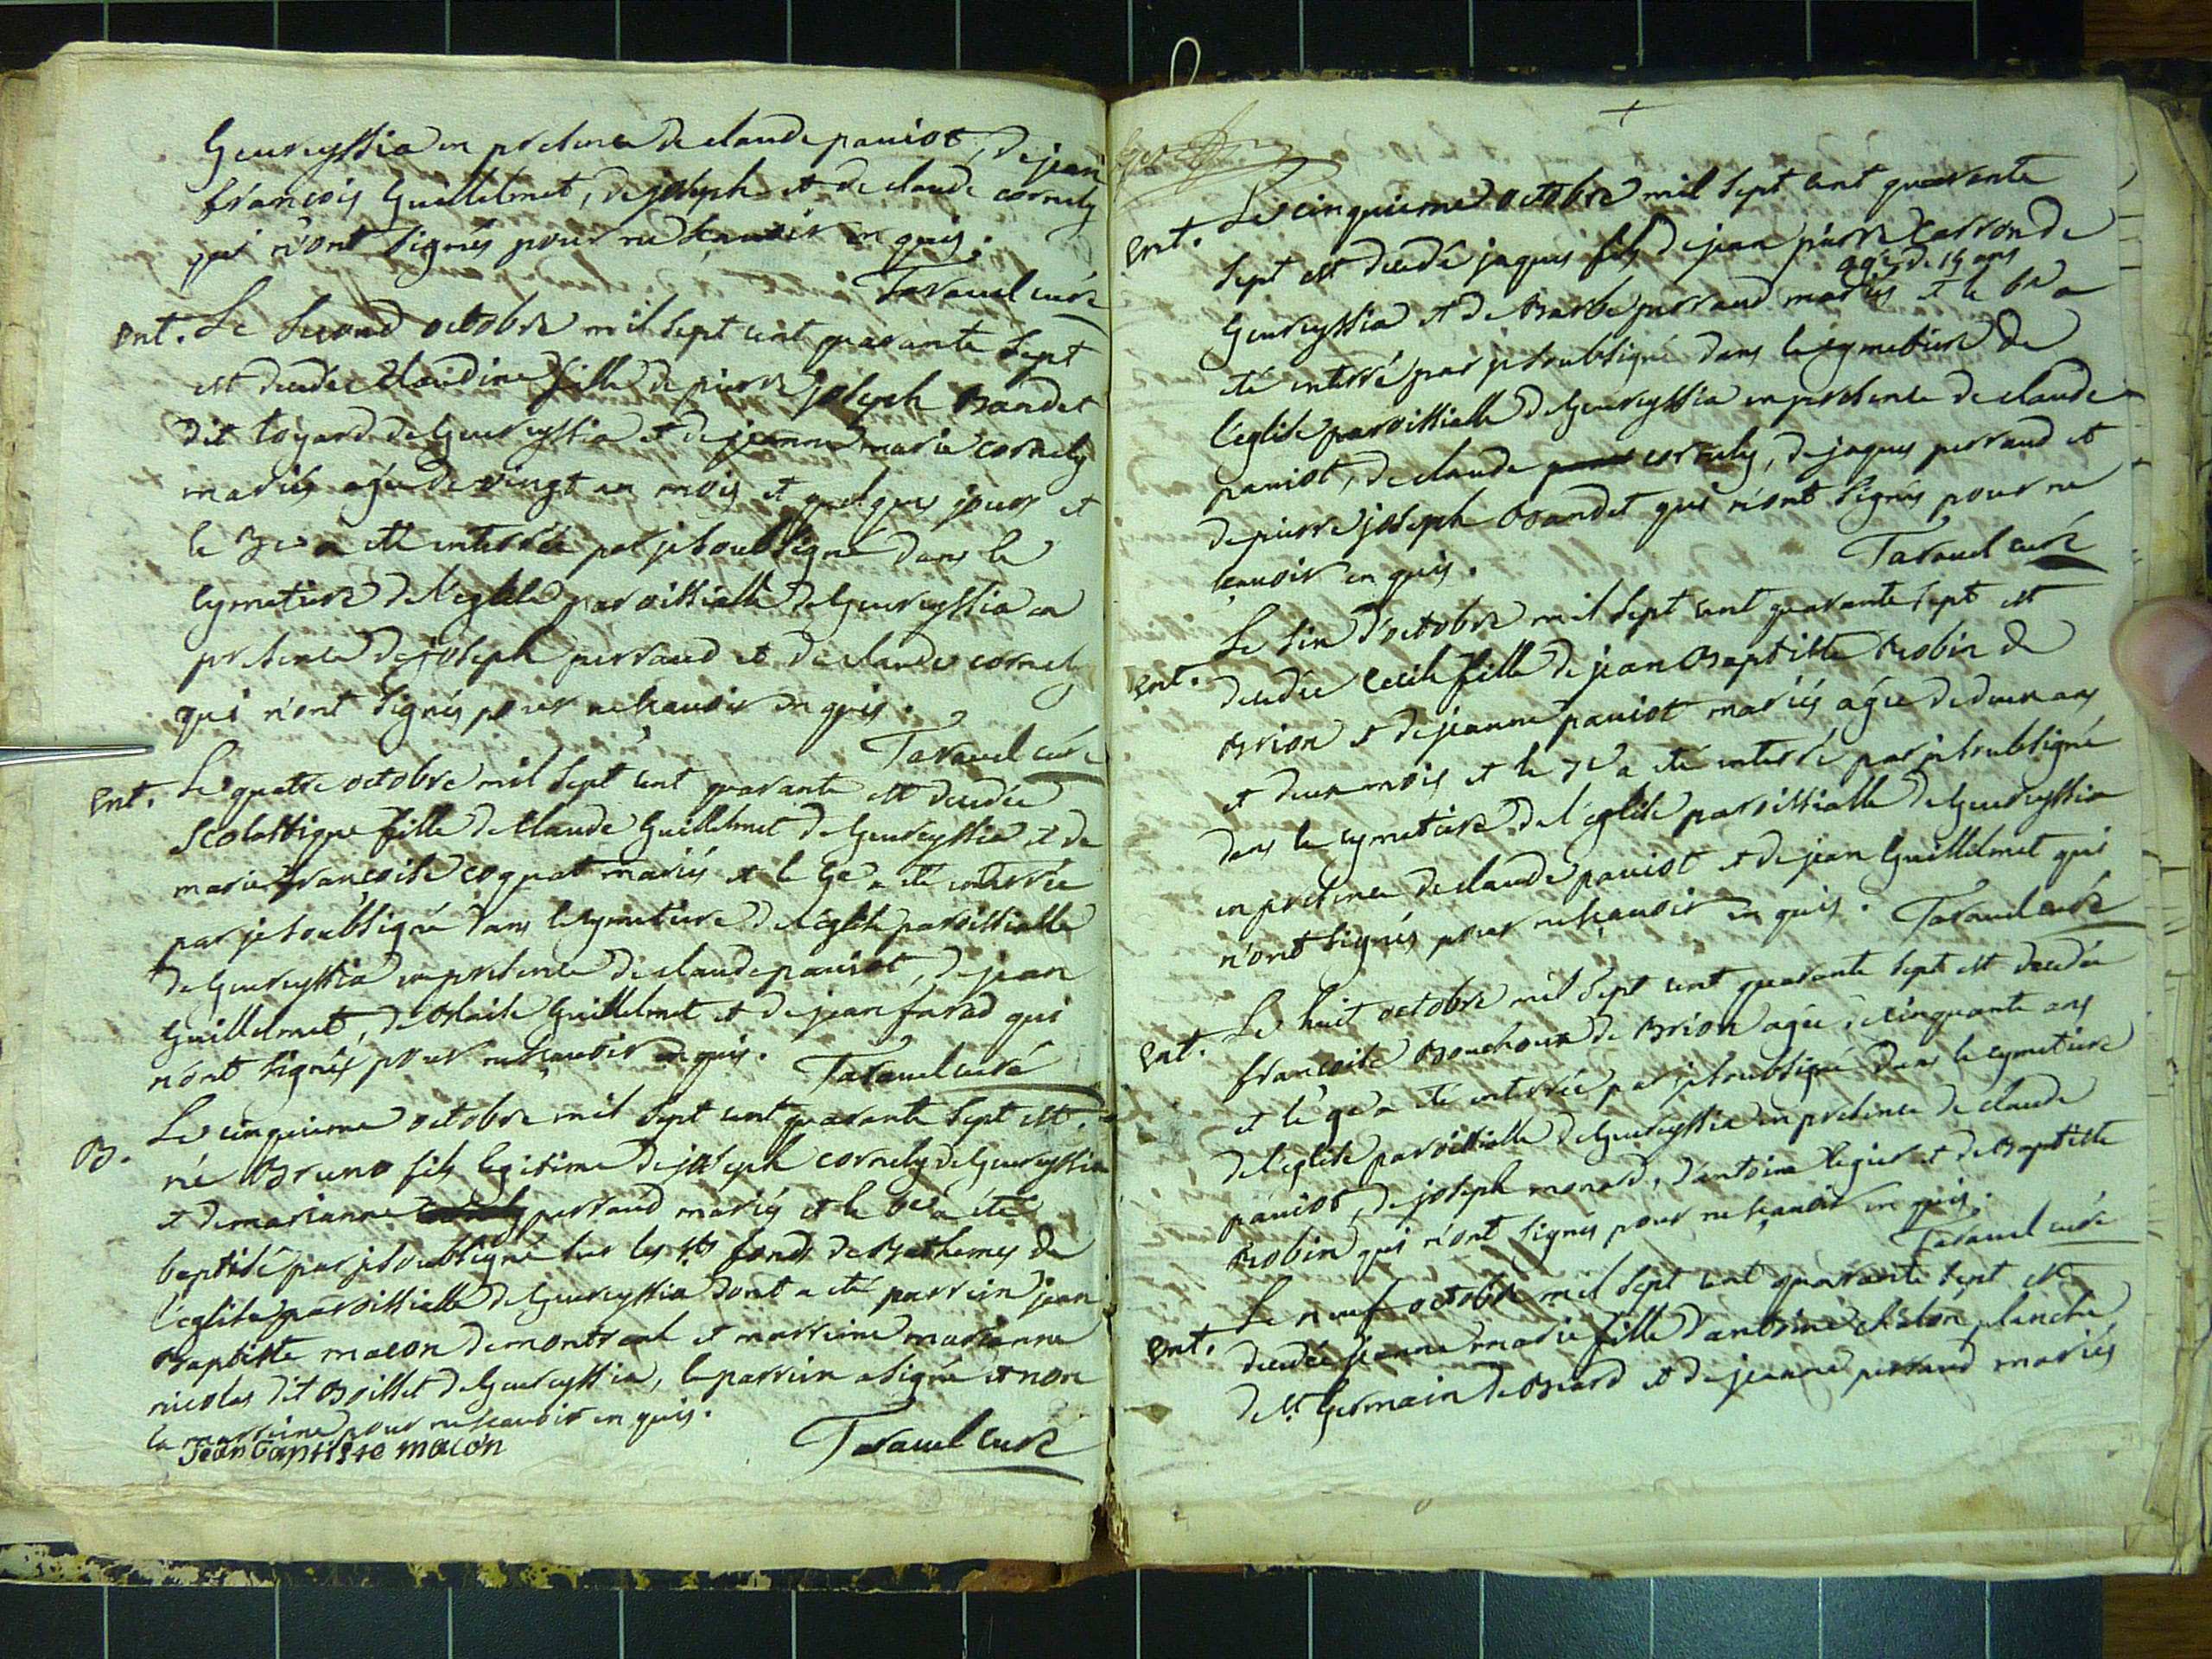 Geureyssia en presence de claude paniot, de jean
françois Guillelmet, de joseph et de claude cornely
qui n'ont signés pour ne sçauoir enquis.
Tavauel curé
Ent. Le second octobre mil sept cent quarante sept
est decedée claudine fille de pierre joseph Bandet
dit toyard de Geureyssia et de jeanne marie cornely
mariés agée de vingt un mois et quelques jours et
le 3e a été enterrée par je soubsigné dans le
cymetiere de l'eglise paroissialle de Geureyssia en
presence de joseph perraud et de claude cornely
qui n'ont signés pour ne sçauoir enquis.
Tavauel curé
Ent. Le quatre octobre mil sept cent quarante est decedée
scolastique fille de claude Guillelmet de Geureyssia et de
marie françoise coquat mariés et le 5e a été enterrée
par je soubsigné dans le cymetiere de l'eglise paroissialle
de Geureyssia en presence de claude paniot, de jean
Guillelmet, de Blaise Guillelmet et de jean favad qui
n'ont signés pour ne sçauoir enquis. Tavauel curé
B. Le cinquieme octobre mil sept cent quarante sept est
né Bruno fils legitime de joseph cornely de Geureyssia
et de marianne perraud mariés et le 6e a été
baptisé par je soubsigné sur les sts fonds de Bathemes de
l'eglise paroissialle de Geureyssia dont a été parrein jean
Baptiste macon de montreal et marreine marianne
nicolas dit Boillet de Geureyssia, le parrein a signé et non
la marreine pour ne sçauoir enquis.
Jean baptiste macon Tavauel curé
+
Ent. Le cinquieme octobre mil sept cent quarante
sept est decedé jaques fils de jean pierre carron de
agé de 15 ans
Geureyssia et de Barbe perraud mariés et le 6e a
été enterré par je soubsigné dans le cymetiere de
l'eglise paroissialle de Geureyssia en presence de claude
paniot, de claude cornely, de jaques perraud et
de pierre joseph Bandet qui n'ont signés pour ne
sçauoir enquis. Tavauel curé
Ent. Le six d'octobre mil sept cent quarante sept est
decedée cecile fille de jean Baptiste Robin de
Brion et de jeanne paniot mariés agée de deux ans
et deux mois et le 7e a été enterré par je soubsigné
dans le cymetiere de l'eglise paroissialle de Geureyssia
en presence de claude paniot et de jean Guillelmet qui
n'ont signés pour ne sçauoir enquis. Tavauel curé
Ent. Le huit octobre mil sept cent quarante sept est decedée
françoise Bouchoux de Brion agée de cinquante ans
et le 9e a été enterrée par je soubsigné dans le cymetiere
de l'eglise paroissialle de Geureyssia en presence de claude
paniot, de joseph monard, d'antoine legier et de Baptiste
Robin qui n'ont signés pour ne sçauoir enquis.
Tavauel curé
Ent. Le neuf octobre mil sept cent quarante sept est
decedée jeanne marie fille d'antoine chalon planche
de st Germain de Beard et de jeanne perraud mariés